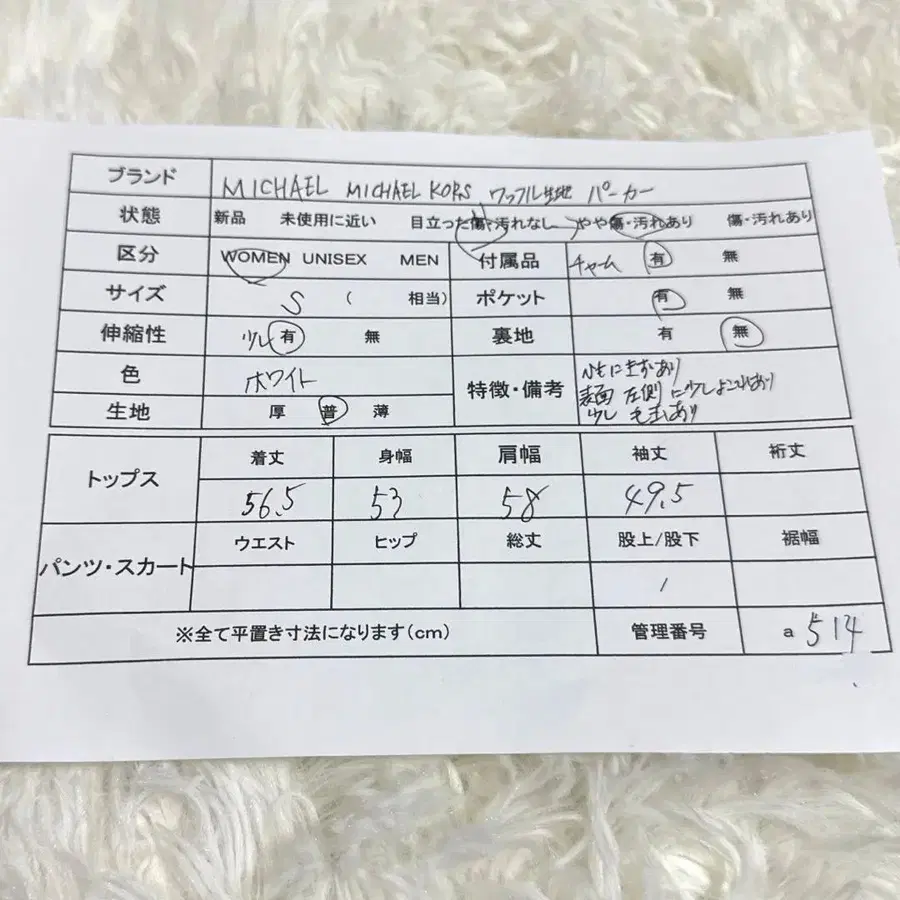 ブランド MICHAEL MICHAEL KORS ワッフル生地 パーカー
状態 新品 未使用に近い 目立った傷・汚れなし やや傷・汚れあり 傷・汚れあり
区分 WOMEN UNISEX MEN 付属品 チャーム 有 無
サイズ S ( 相当) ポケット 有 無
伸縮性 少し 有 無 裏地 有 無
色 ホワイト 特徴・備考
ひもにきずあり
表面 左側 に少しよごれあり
少し 毛玉あり
生地 厚 普 薄
トップス 着丈 身幅 肩幅 袖丈 裄丈
56.5 53 58 49.5
パンツ・スカート ウエスト ヒップ 総丈 股上/股下 裾幅
/
※全て平置き寸法になります(cm) 管理番号 a 514